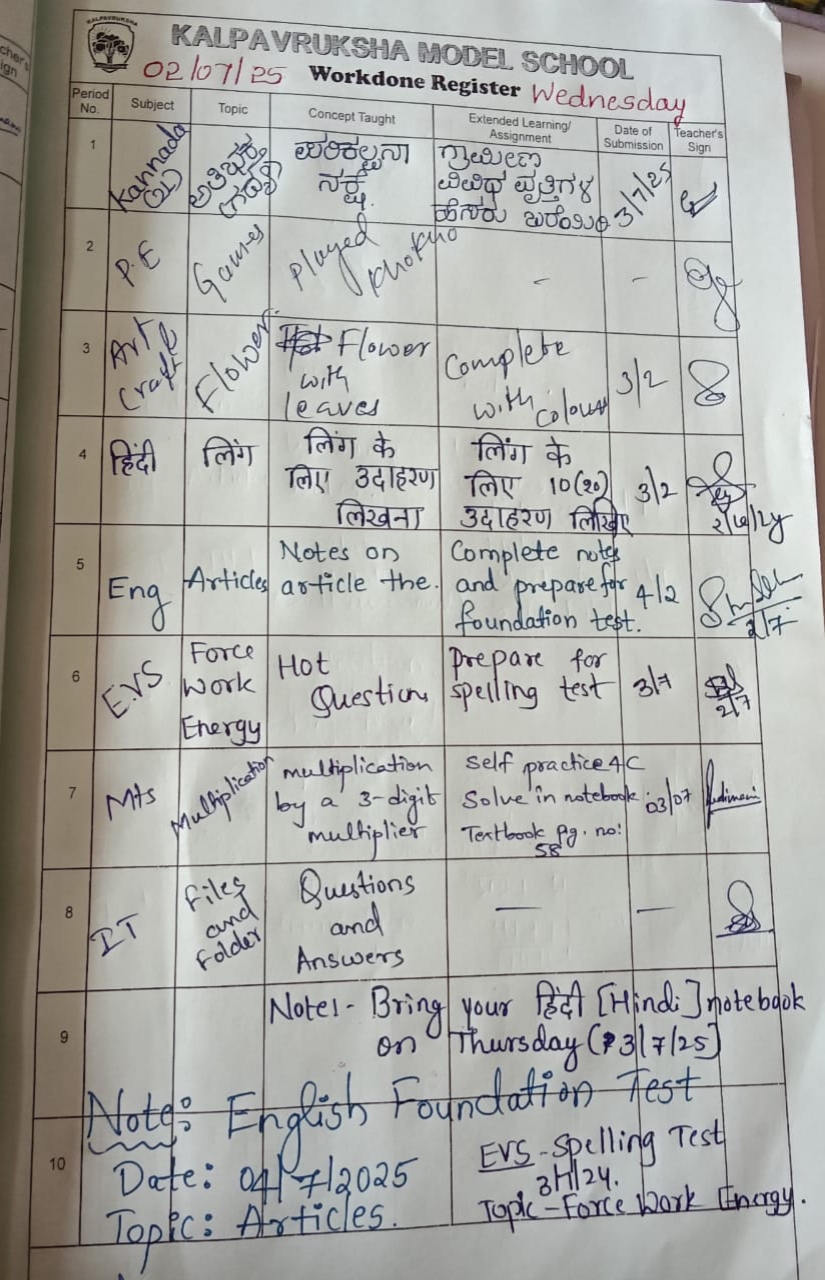 KALPAVRUKSHA
KALPAVRUKSHA MODEL SCHOOL
02/07/25 Workdone Register Wednesday
Period No. Subject Topic Concept Taught Extended Learning/ Assignment Date of Submission Teacher's Sign
1 Kannada (2L) ಪರಿಕಲ್ಪನಾ ನಕ್ಷೆ. ಗ್ರಾಮೀಣ ವಿವಿಧ ವೃತ್ತಿಗಳ ಹೆಸರು ಬರೆಯಿರಿ 3/7/25
2 P.E Games Played Khokho - -
3 Art Craft Flower. Flower with leaves Complete with colour 3/2
4 हिंदी लिंग लिंग के लिए उदाहरण लिखना लिंग के लिए 10(20) उदाहरण लिखिए 3/2
5 Eng Articles Notes on article the. Complete notes and prepare for foundation test. 4/2 2/7
6 E.VS Force Work Energy Hot Question Prepare for spelling test 3/7 2/7
7 Mts Multiplication multiplication by a 3-digit multiplier Self practice 4C Solve in notebook Textbook Pg. no: 58 03/07
8 IT Files and Folder Questions and Answers — —
9 Note:- Bring your हिंदी [Hindi] notebook
on Thursday (3/7/25]
Note: English Foundation Test
10 Date: 04/7/2025
Topic: Articles.
EVS - Spelling Test
3/7/24.
Topic - Force Work Energy.